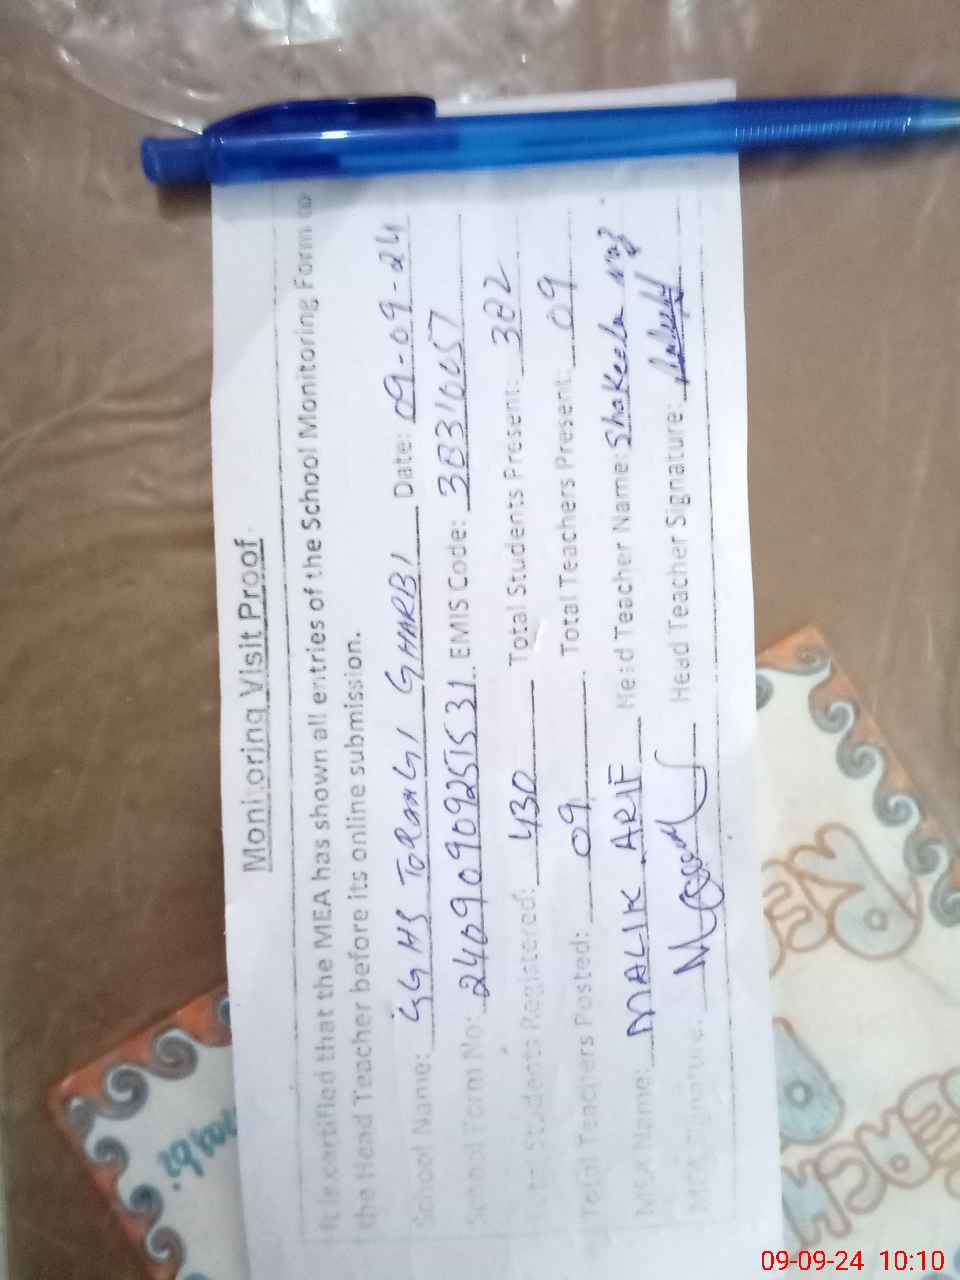 Monitoring Visit Proof
It is certified that the MEA has shown all entries of the School Monitoring Form to
the Head Teacher before its online submission.
School Name: GGHS ToRanGI GHARBI Date: 09-09-24
School Form No: 24090909251531 EMIS Code: 38310057
Total Students Registered: 430 Total Students Present: 382
Total Teachers Posted: 09 Total Teachers Present: 09
MEA Name: MALIK ARIF Head Teacher Name: Shakeela Naz
MEA Signature: Head Teacher Signature:
09-09-24 10:10